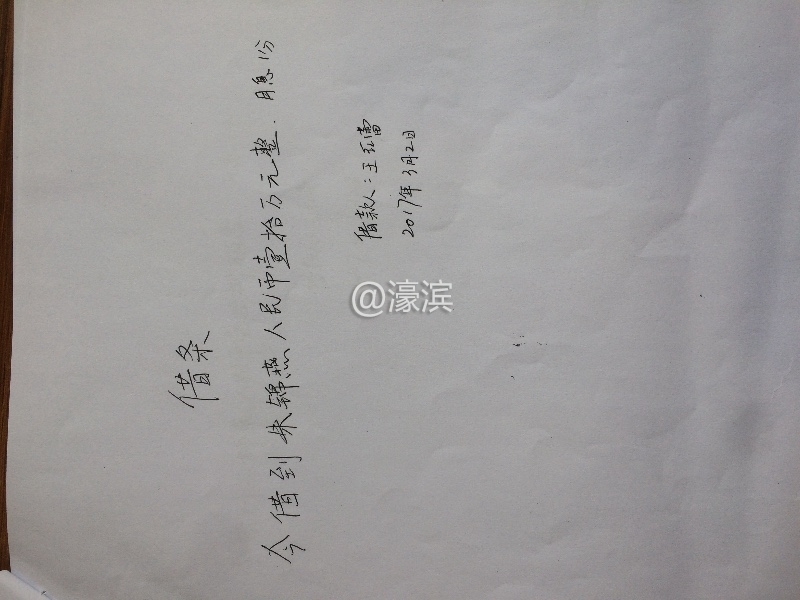 借条
今借到朱锦燕人民币壹拾万元整.月息1分
借款人:王红雷
2017年3月2日
@濠滨